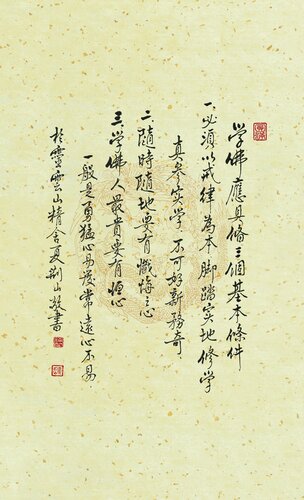 學佛應具備三個基本條件
一、必須以戒律為本腳踏實地修學
真參實學不可好新務奇
二、隨時隨地要有懺悔之心
三、學佛人最貴要有恒心
一般是勇猛心易發常遠心不易
於靈雲山精舍夏荆山敬書